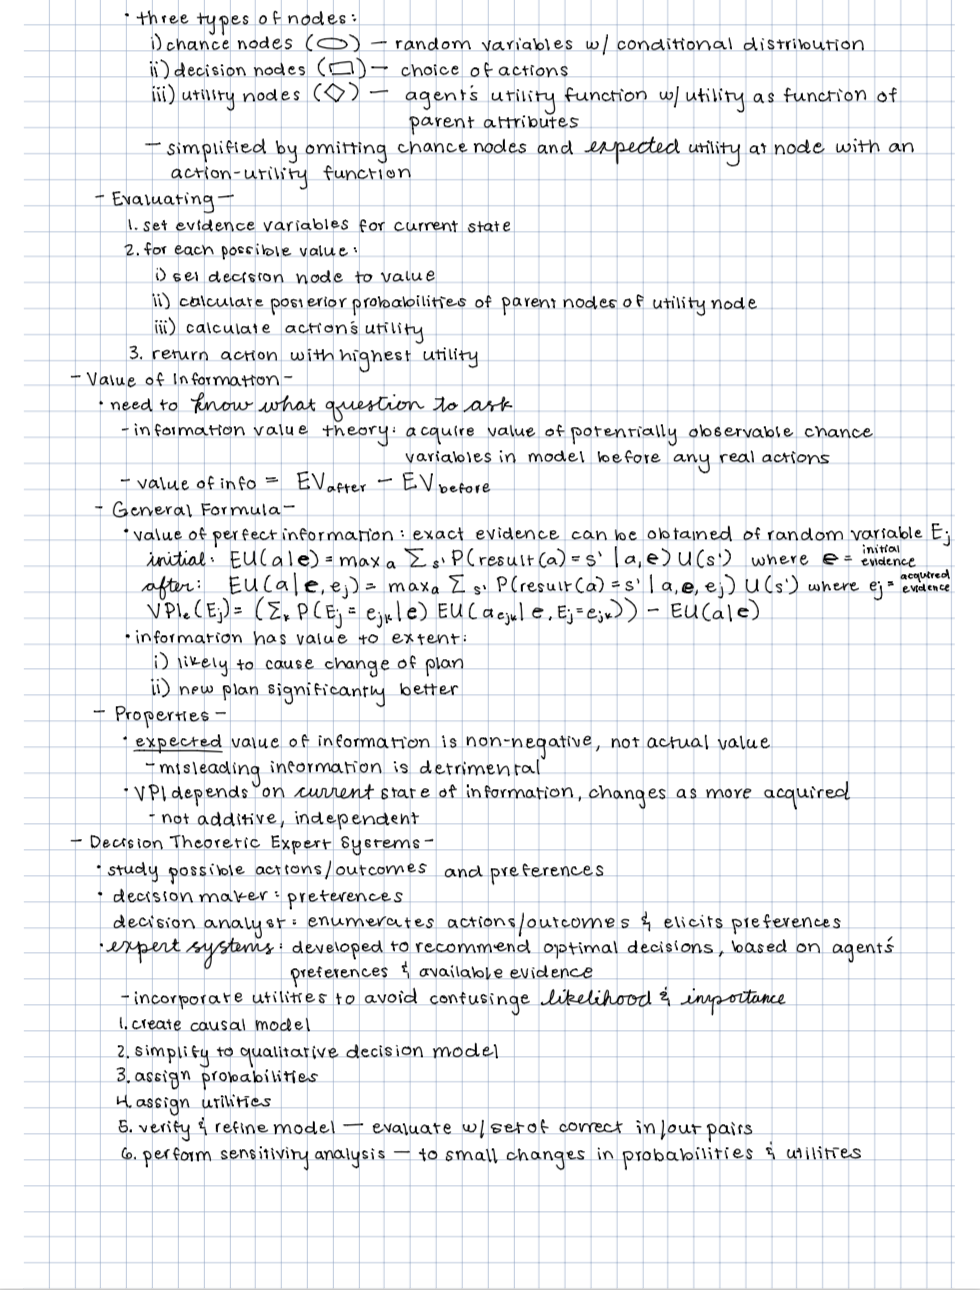 • three types of nodes:
i) chance nodes (⬭) — random variables w/ conditional distribution
ii) decision nodes (▭) — choice of actions
iii) utility nodes (◇) — agent's utility function w/ utility as function of
parent attributes
— simplified by omitting chance nodes and expected utility at node with an
action-utility function
- Evaluating -
1. set evidence variables for current state
2. for each possible value:
i) set decision node to value
ii) calculate posterior probabilities of parent nodes of utility node
iii) calculate action's utility
3. return action with highest utility
- Value of Information -
• need to know what question to ask
- information value theory: acquire value of potentially observable chance
variables in model before any real actions
- value of info = EV after - EV before
- General Formula -
• value of perfect information: exact evidence can be obtained of random variable Ej
initial: EU(a|e) = max a Σ s' P(result(a) = s' | a, e) U(s') where e = initial evidence
after: EU(a|e, ej) = max a Σ s' P(result(a) = s' | a, e, ej) U(s') where ej = acquired evidence
VPIe(Ej) = (Σk P(Ej = ejk|e) EU(aejk|e, Ej = ejk)) - EU(a|e)
• information has value to extent:
i) likely to cause change of plan
ii) new plan significantly better
- Properties -
• expected value of information is non-negative, not actual value
- misleading information is detrimental
• VPI depends on current state of information, changes as more acquired
- not additive, independent
- Decision Theoretic Expert Systems -
• study possible actions/outcomes and preferences
• decision maker: preferences
decision analyst: enumerates actions/outcomes & elicits preferences
• expert systems: developed to recommend optimal decisions, based on agent's
preferences & available evidence
- incorporate utilities to avoid confusinge likelihood & importance
1. create causal model
2. simplify to qualitative decision model
3. assign probabilities
4. assign utilities
5. verify & refine model — evaluate w/ set of correct in/out pairs
6. perform sensitivity analysis — to small changes in probabilities & utilities